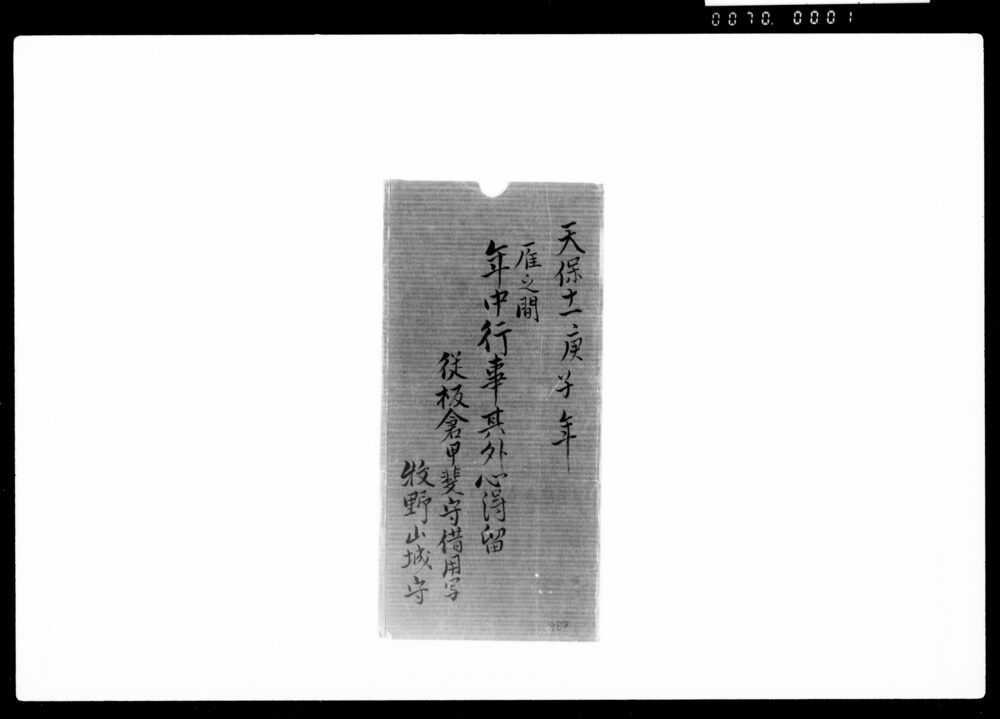 0070.0001
天保十一庚子年
雁之間
年中行事其外心得留
従板倉甲斐守借用写
牧野山城守